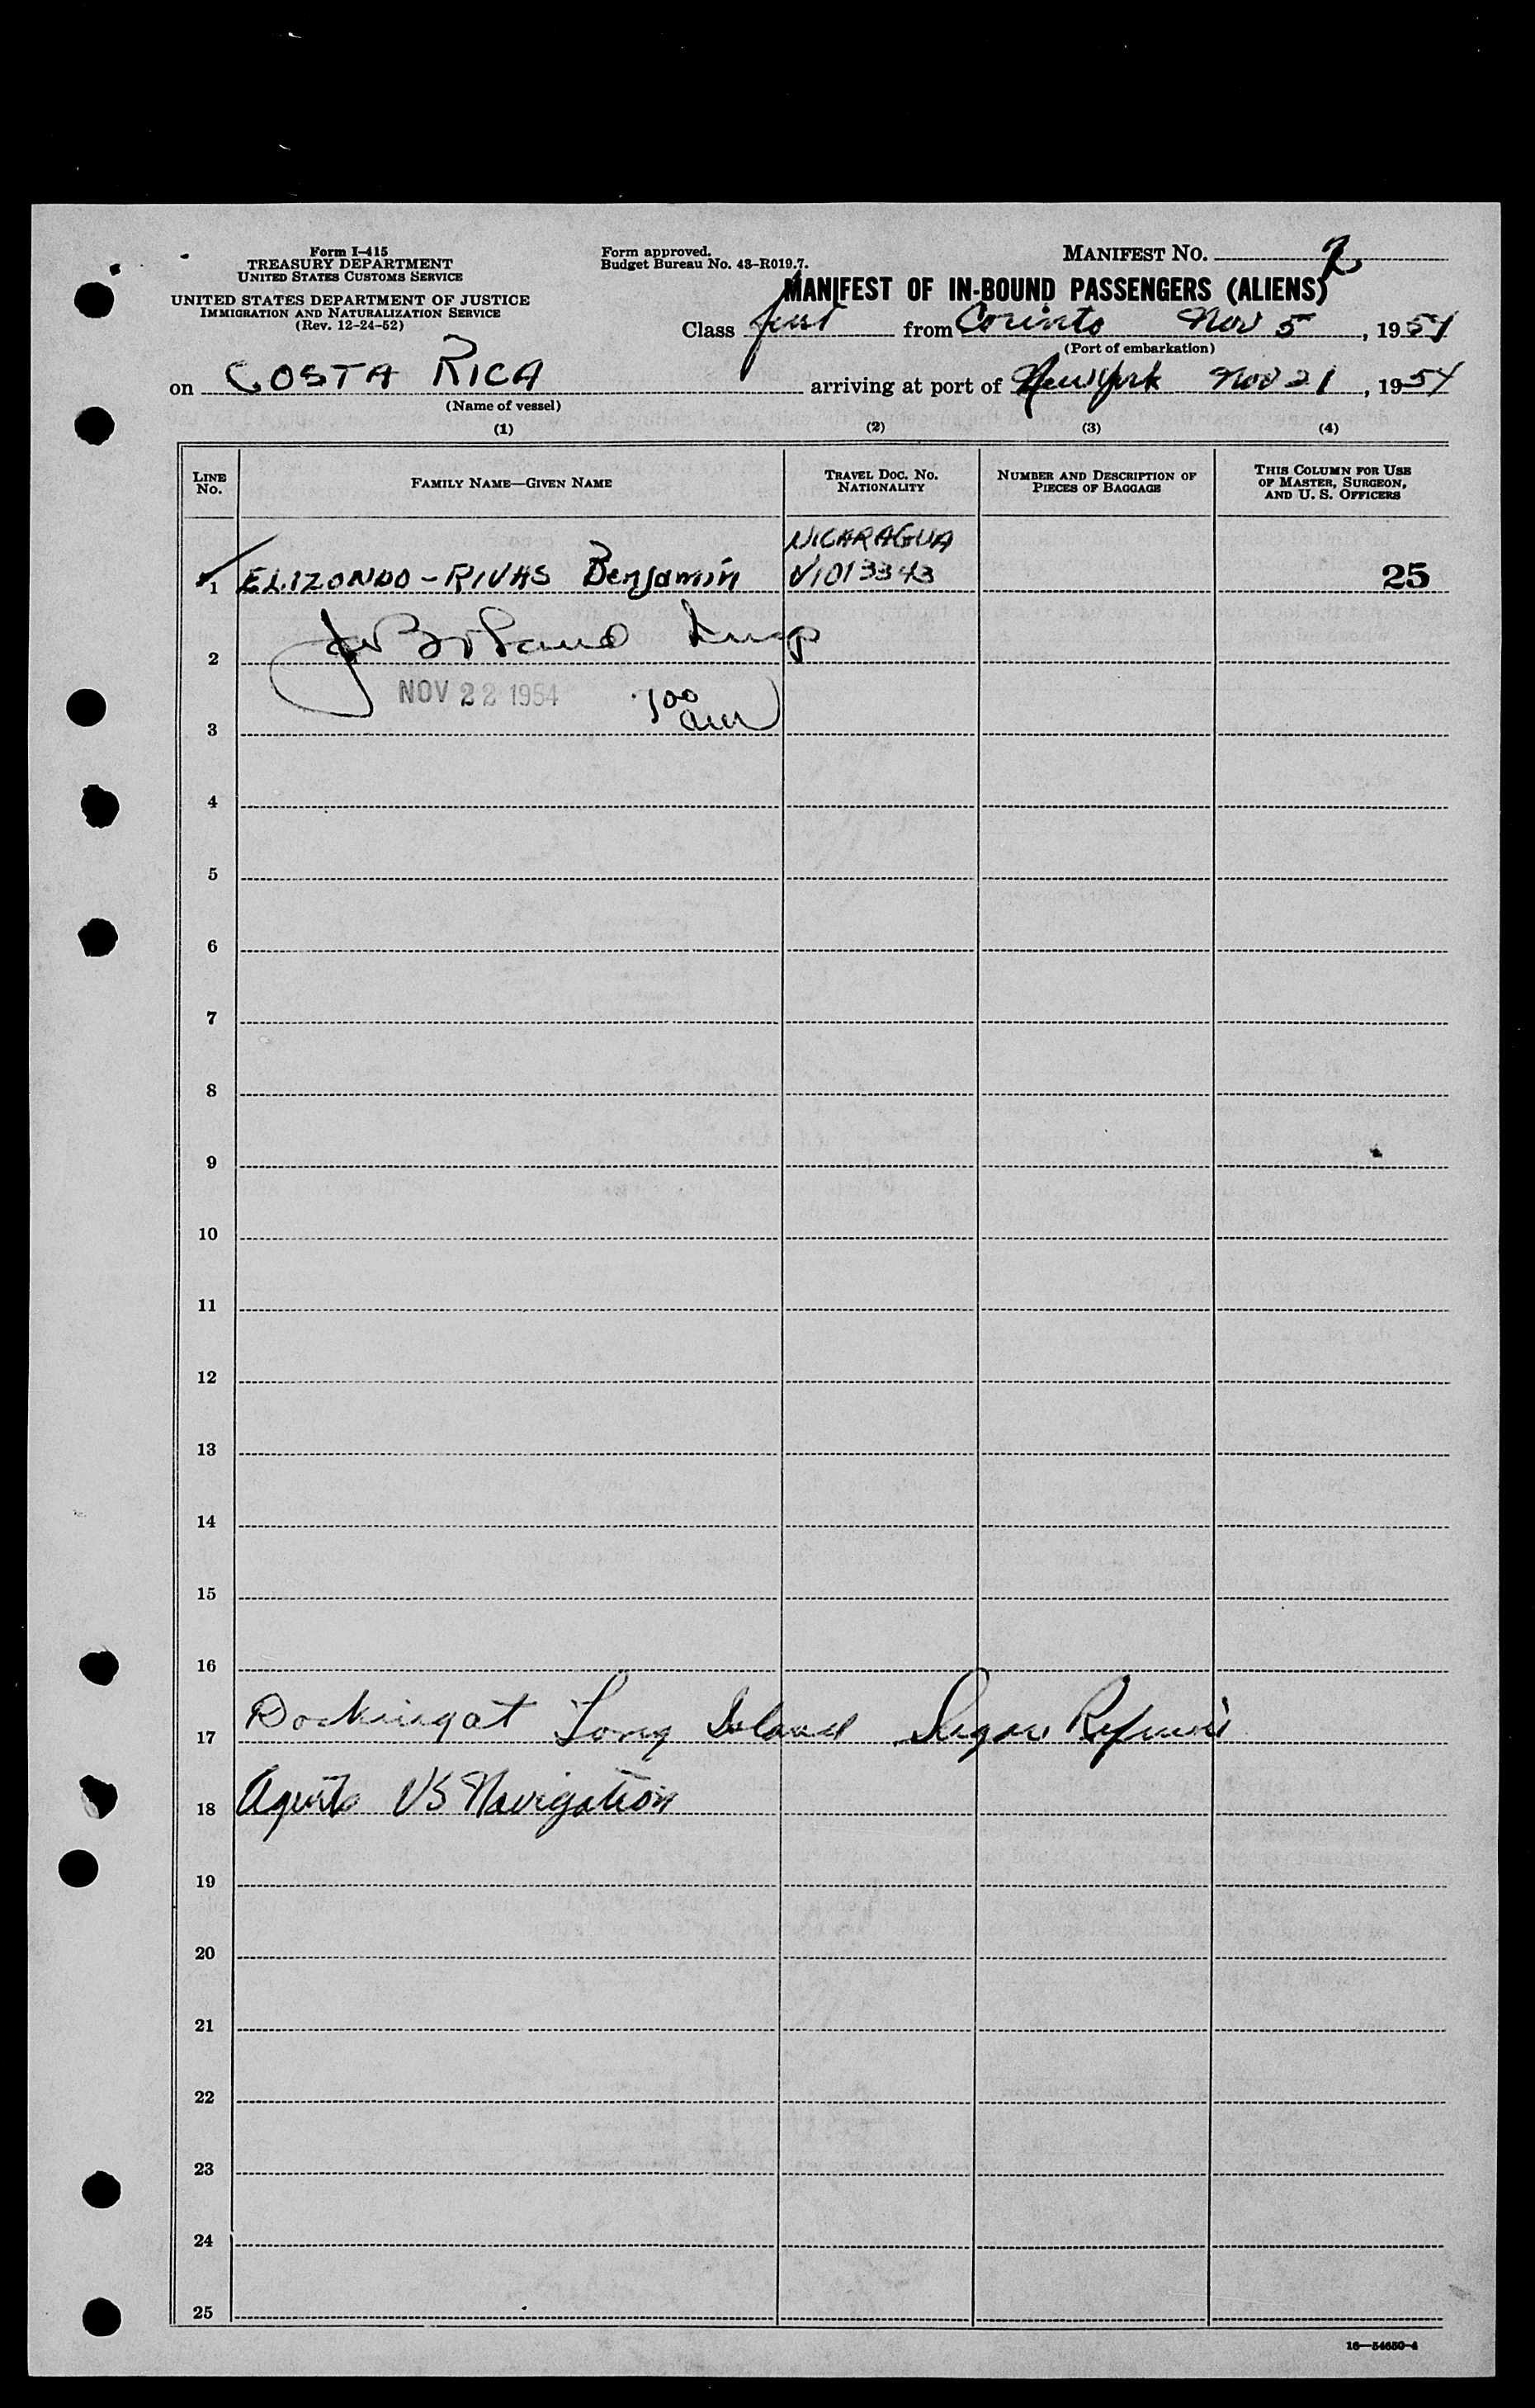 Form I-415
TREASURY DEPARTMENT
UNITED STATES CUSTOMS SERVICE
UNITED STATES DEPARTMENT OF JUSTICE
IMMIGRATION AND NATURALIZATION SERVICE
(Rev. 12-24-52)
Form approved.
Budget Bureau No. 43-R019.7.
MANIFEST No. 2
MANIFEST OF IN-BOUND PASSENGERS (ALIENS)
Class first from Corinto Nov 5, 1954
(Port of embarkation)
on COSTA RICA arriving at port of New York Nov 21, 1954
(Name of vessel)
(1) (2) (3) (4)
LINE No. FAMILY NAME—GIVEN NAME TRAVEL DOC. NO. NATIONALITY NUMBER AND DESCRIPTION OF PIECES OF BAGGAGE THIS COLUMN FOR USE OF MASTER, SURGEON, AND U. S. OFFICERS
NICARAGUA
1 ELIZONDO-RIVAS Benjamin V1013343 25
2 Insp
NOV 22 1954 700 am
3
4
5
6
7
8
9
10
11
12
13
14
15
16
17 Docking at Long Island Sugar
18 Agents US Navigation
19
20
21
22
23
24
25
16—54650-4